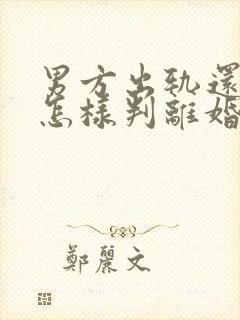 男方出轨還
怎樣判離婚
鄭麗文